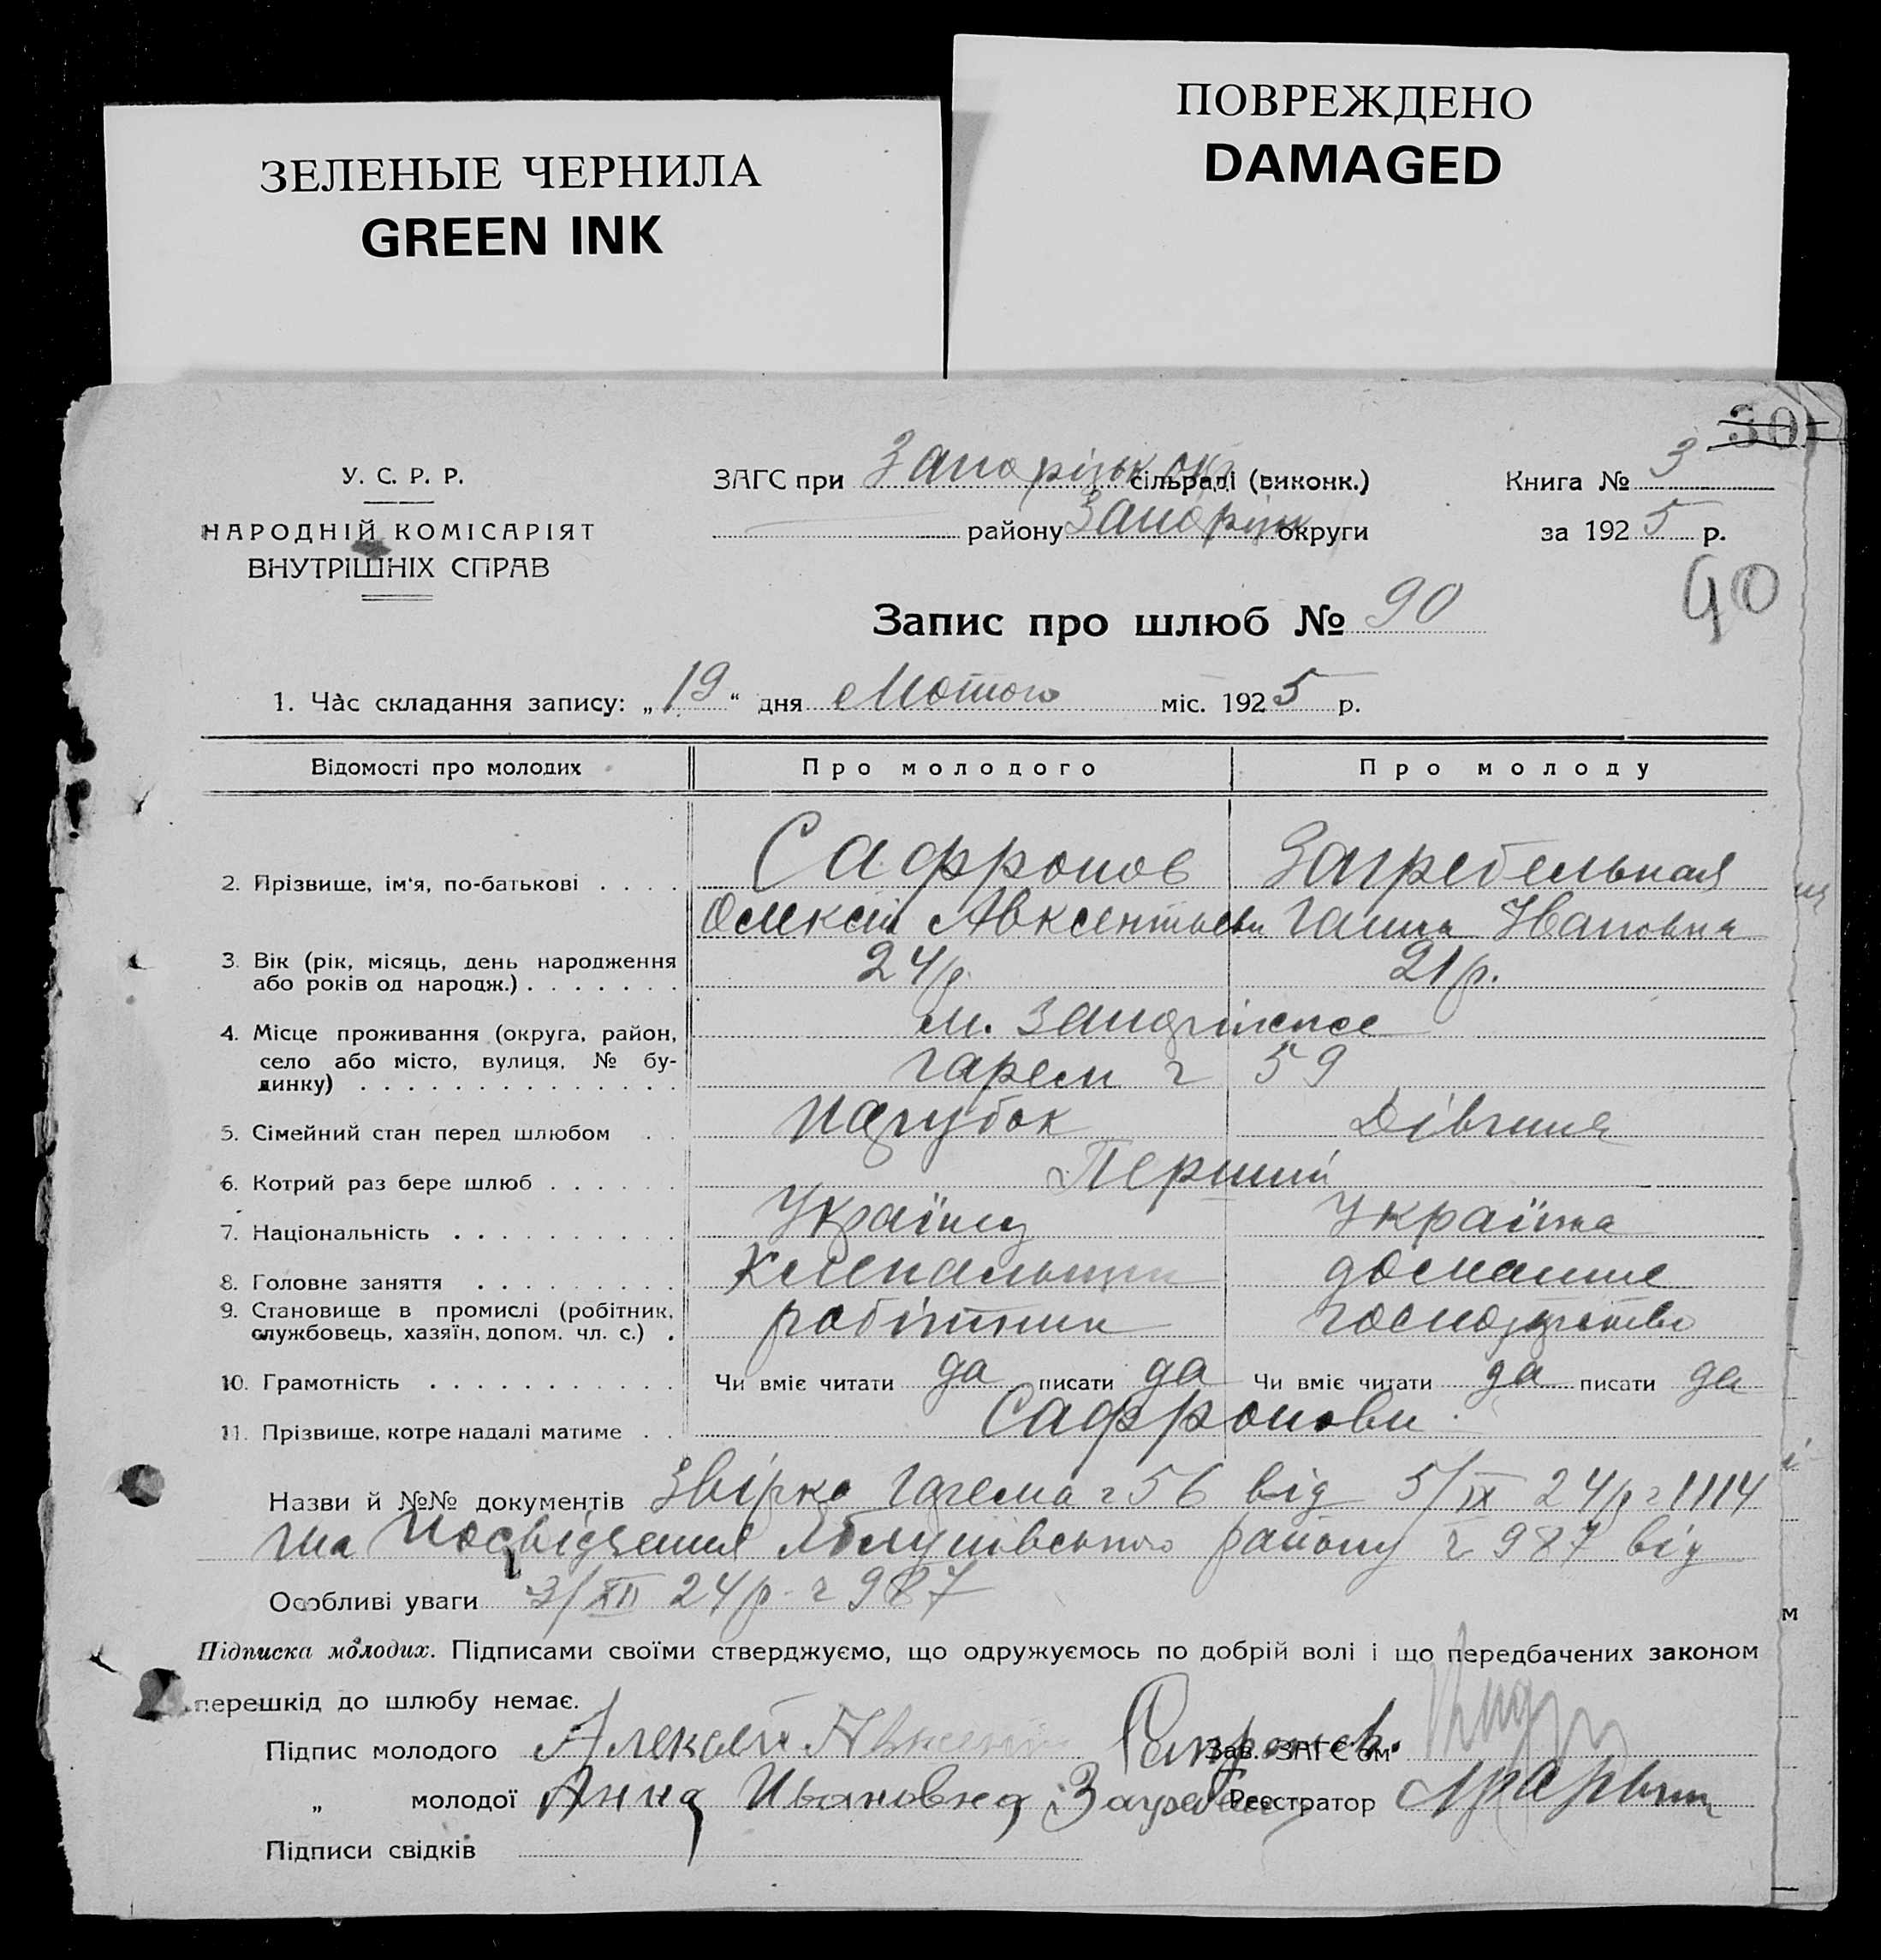 ЗЕЛЕНЫЕ ЧЕРНИЛА
GREEN INK
ПОВРЕЖДЕНО
DAMAGED
30
У. С. Р. Р.
НАРОДНІЙ КОМІСАРІЯТ
ВНУТРІШНІХ СПРАВ
ЗАГС при Запорізьк окр сільраді (виконк.)
району Запоріж округи
Книга № 3
за 1925 р.
90
Запис про шлюб № 90
1. Час складання запису: „19“ дня Лютого міс. 1925 р.
Відомості про молодих Про молодого Про молоду
2. Прізвище, ім'я, по-батькові . . . . Сафронов Загребельная
Олексій Авксентьеви Ганна Ивановна
3. Вік (рік, місяць, день народження або років од народж.) . . . . . . . 24р. 21р.
4. Місце проживання (округа, район, село або місто, вулиця, № будинку) . . . . . . . . . . . . . . м. Запоріжжє
гарем ч 59
5. Сімейний стан перед шлюбом . . Парубок Дівчина
6. Котрий раз бере шлюб . . . . . . Перший
7. Національність . . . . . . . . . . Українец Українка
8. Головне заняття . . . . . . . . . Клепальщик домашнє
9. Становище в промислі (робітник, службовець, хазяїн, допом. чл. с.) . робітник господарство
10. Грамотність . . . . . . . . . . . Чи вміє читати да писати да Чи вміє читати да писати да
11. Прізвище, котре надалі матиме . . Сафронови
Назви й №№ документів Звірка гарема ч 56 від 5/IX 24р ч 1114
та посвідчення району ч 987 від
Особливі уваги 3/XII 24р ч 987
Підписка молодих. Підписами своїми стверджуємо, що одружуємось по добрій волі і що передбачених законом
перешкід до шлюбу немає.
Підпис молодого Алексей Авксент Сапронов. Зав. ЗАГС'ом
„ молодої Анна Ивановна Загребел Реєстратор
Підписи свідків